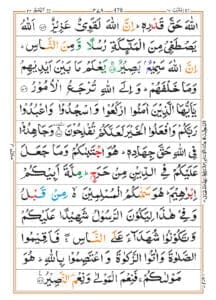 اللّٰهَ حَقَّ قَدْرِهٖ ؕ اِنَّ اللّٰهَ لَقَوِیٌّ عَزِیْزٌ اَللّٰهُ
یَصْطَفِیْ مِنَ الْمَلٰٓىِٕكَةِ رُسُلًا وَّ مِنَ النَّاسِ ؕ
اِنَّ اللّٰهَ سَمِیْعٌۢ بَصِیْرٌ یَعْلَمُ مَا بَیْنَ اَیْدِیْهِمْ
وَ مَا خَلْفَهُمْ ؕ وَ اِلَی اللّٰهِ تُرْجَعُ الْاُمُوْرُ
یٰۤاَیُّهَا الَّذِیْنَ اٰمَنُوا ارْكَعُوْا وَ اسْجُدُوْا وَ اعْبُدُوْا
رَبَّكُمْ وَ افْعَلُوا الْخَیْرَ لَعَلَّكُمْ تُفْلِحُوْنَ وَ جَاهِدُوْا
فِی اللّٰهِ حَقَّ جِهَادِهٖ ؕ هُوَ اجْتَبٰىكُمْ وَ مَا جَعَلَ
عَلَیْكُمْ فِی الدِّیْنِ مِنْ حَرَجٍ ؕ مِلَّةَ اَبِیْكُمْ
اِبْرٰهِیْمَ ؕ هُوَ سَمّٰىكُمُ الْمُسْلِمِیْنَ مِنْ قَبْلُ
وَ فِیْ هٰذَا لِیَكُوْنَ الرَّسُوْلُ شَهِیْدًا عَلَیْكُمْ
وَ تَكُوْنُوْا شُهَدَآءَ عَلَی النَّاسِ ۖۚ فَاَقِیْمُوا
الصَّلٰوةَ وَ اٰتُوا الزَّكٰوةَ وَ اعْتَصِمُوْا بِاللّٰهِ ؕ هُوَ
مَوْلٰىكُمْ ۚ فَنِعْمَ الْمَوْلٰی وَ نِعْمَ النَّصِیْرُ